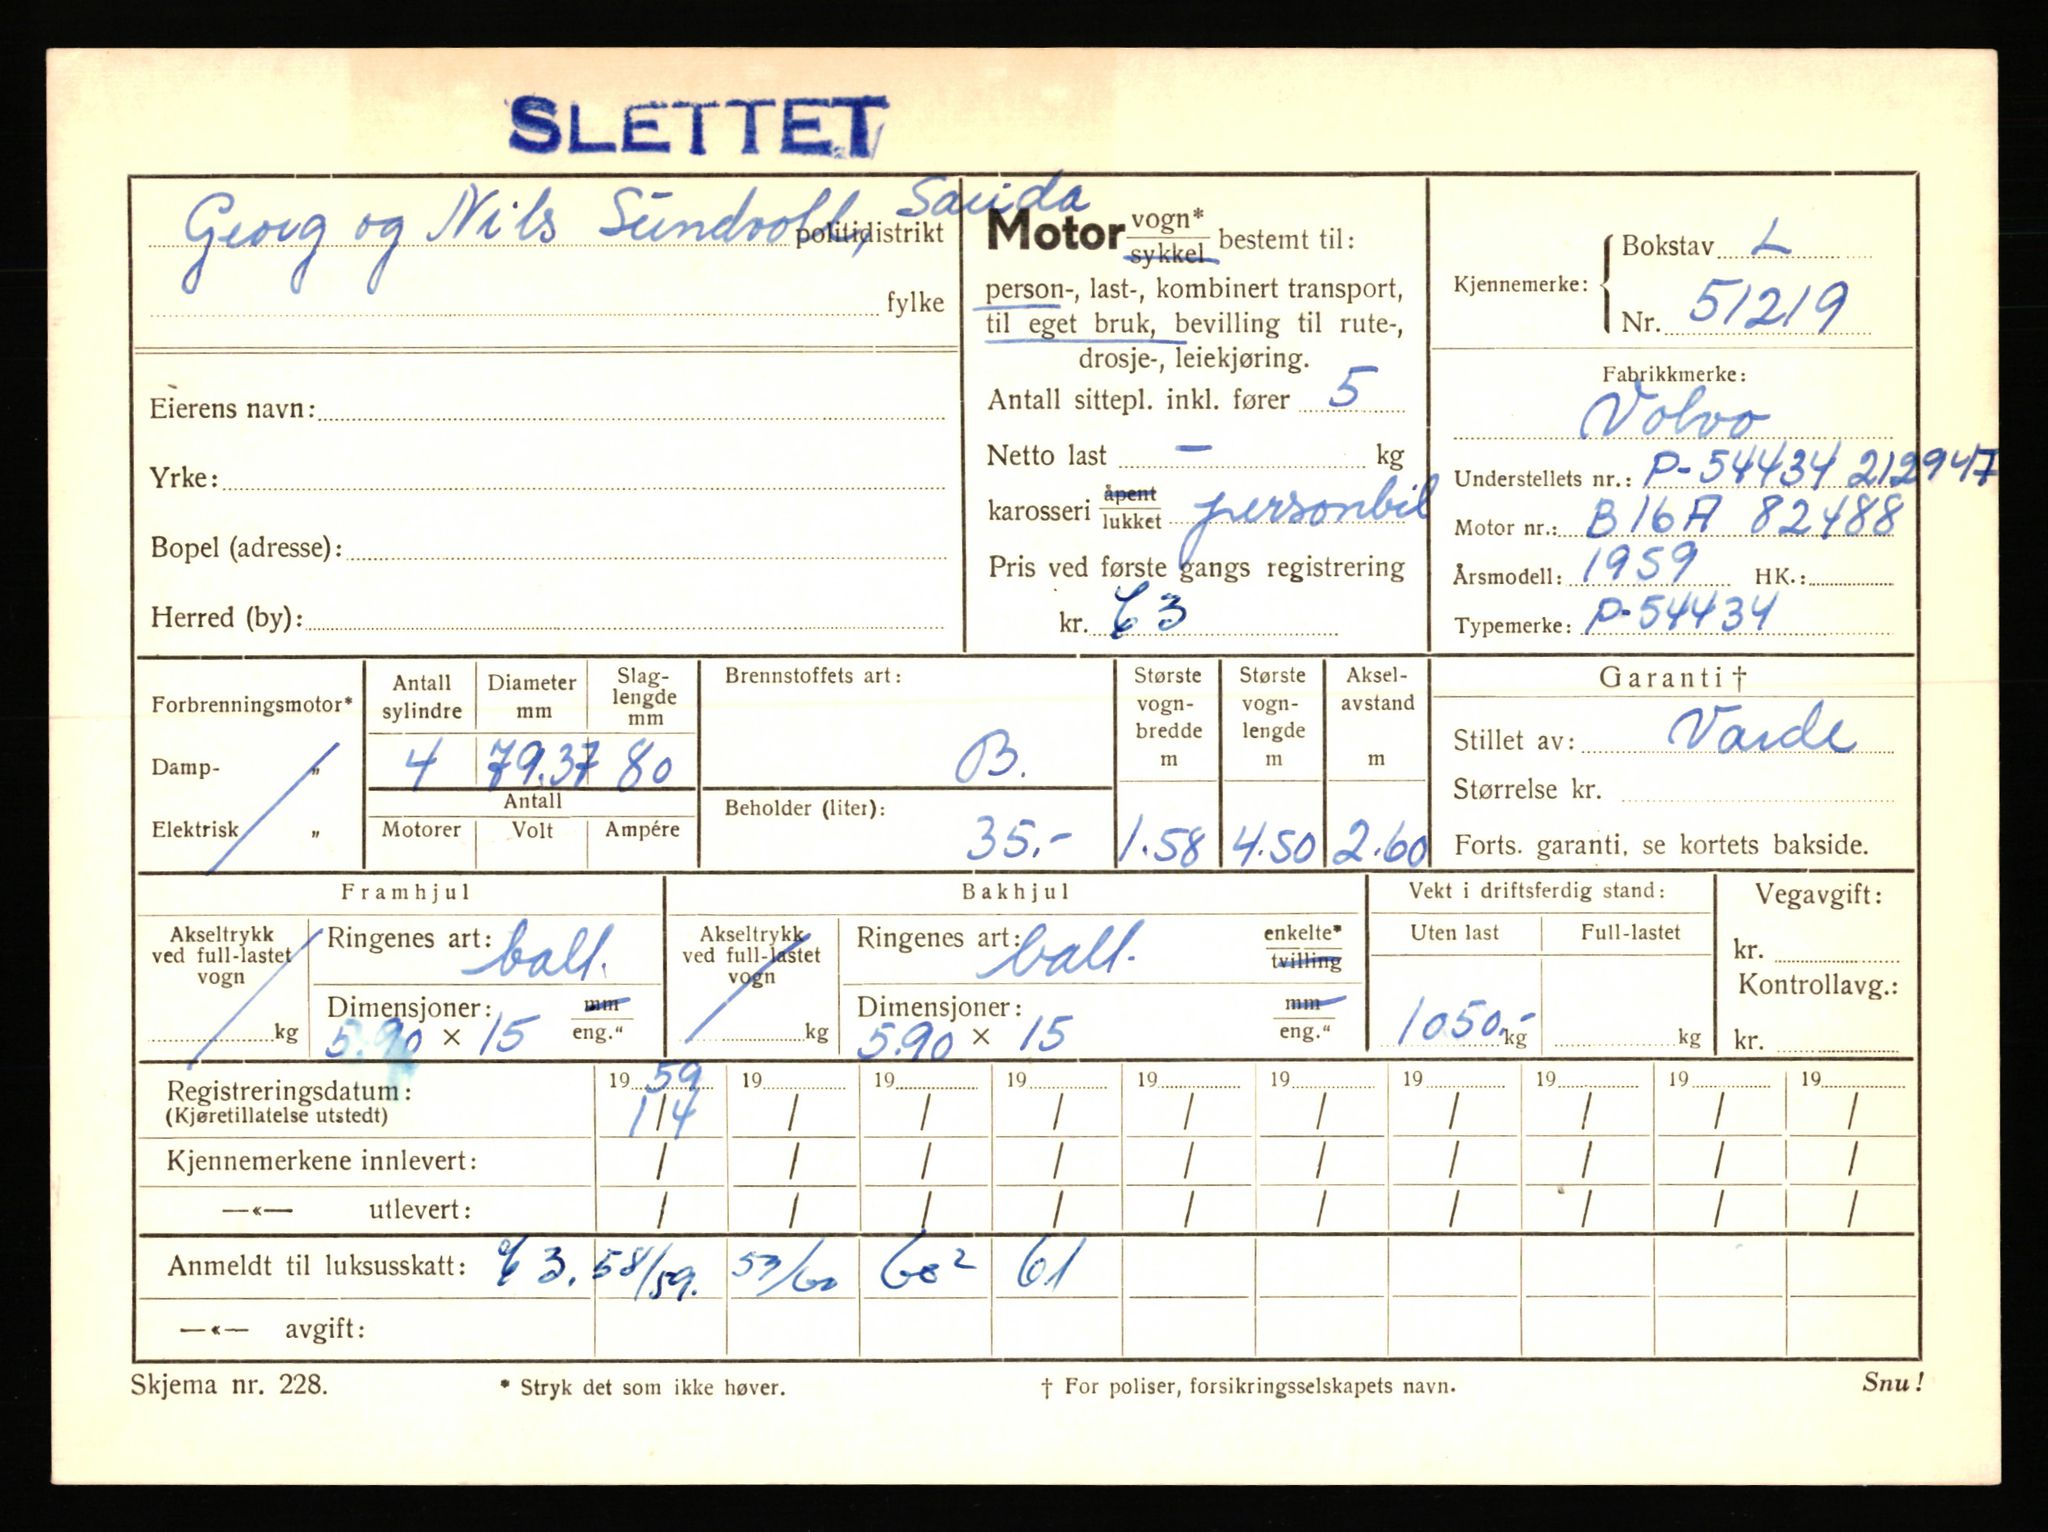 SLETTET
Georg og Nils Sundvoll, Sauda
politidistrikt
fylke
Eierens navn:
Yrke:
Bopel (adresse):
Herred (by):
Motor vogn* / sykkel bestemt til:
person-, last-, kombinert transport,
til eget bruk, bevilling til rute-,
drosje-, leiekjøring.
Antall sittepl. inkl. fører 5
Netto last – kg
karosseri åpent / lukket personbil
Pris ved første gangs registrering
kr. 63
Kjennemerke: Bokstav L
Nr. 51219
Fabrikkmerke:
Volvo
Understellets nr.: P-54434 212947
Motor nr.: B16A 82488
Årsmodell: 1959 HK.:
Typemerke: P-54434
Forbrenningsmotor*
Damp- „
Elektrisk „
Antall sylindre Diameter mm Slag-lengde mm
4 79.37 80
Antall
Motorer Volt Ampére
Brennstoffets art:
B.
Beholder (liter):
35.-
Største vogn-bredde m
1.58
Største vogn-lengde m
4.50
Aksel-avstand m
2.60
Garanti †
Stillet av: Varde
Størrelse kr.
Forts. garanti, se kortets bakside.
Framhjul
Akseltrykk ved full-lastet vogn
kg
Ringenes art: ball.
Dimensjoner: mm / eng."
5.90 × 15
Bakhjul
Akseltrykk ved full-lastet vogn
kg
Ringenes art: ball. enkelte* / tvilling
Dimensjoner: mm / eng."
5.90 × 15
Vekt i driftsferdig stand:
Uten last Full-lastet
1050.- kg kg
Vegavgift:
kr.
Kontrollavg.:
kr.
Registreringsdatum: 19 59 19 19 19 19 19 19 19 19 19
(Kjøretillatelse utstedt) 1/4 / / / / / / / / /
Kjennemerkene innlevert: / / / / / / / / / /
—«— utlevert: / / / / / / / / / /
Anmeldt til luksusskatt: 63. 58/59. 53/60 60² 61
—«— avgift:
Skjema nr. 228. * Stryk det som ikke høver. † For poliser, forsikringsselskapets navn. Snu!